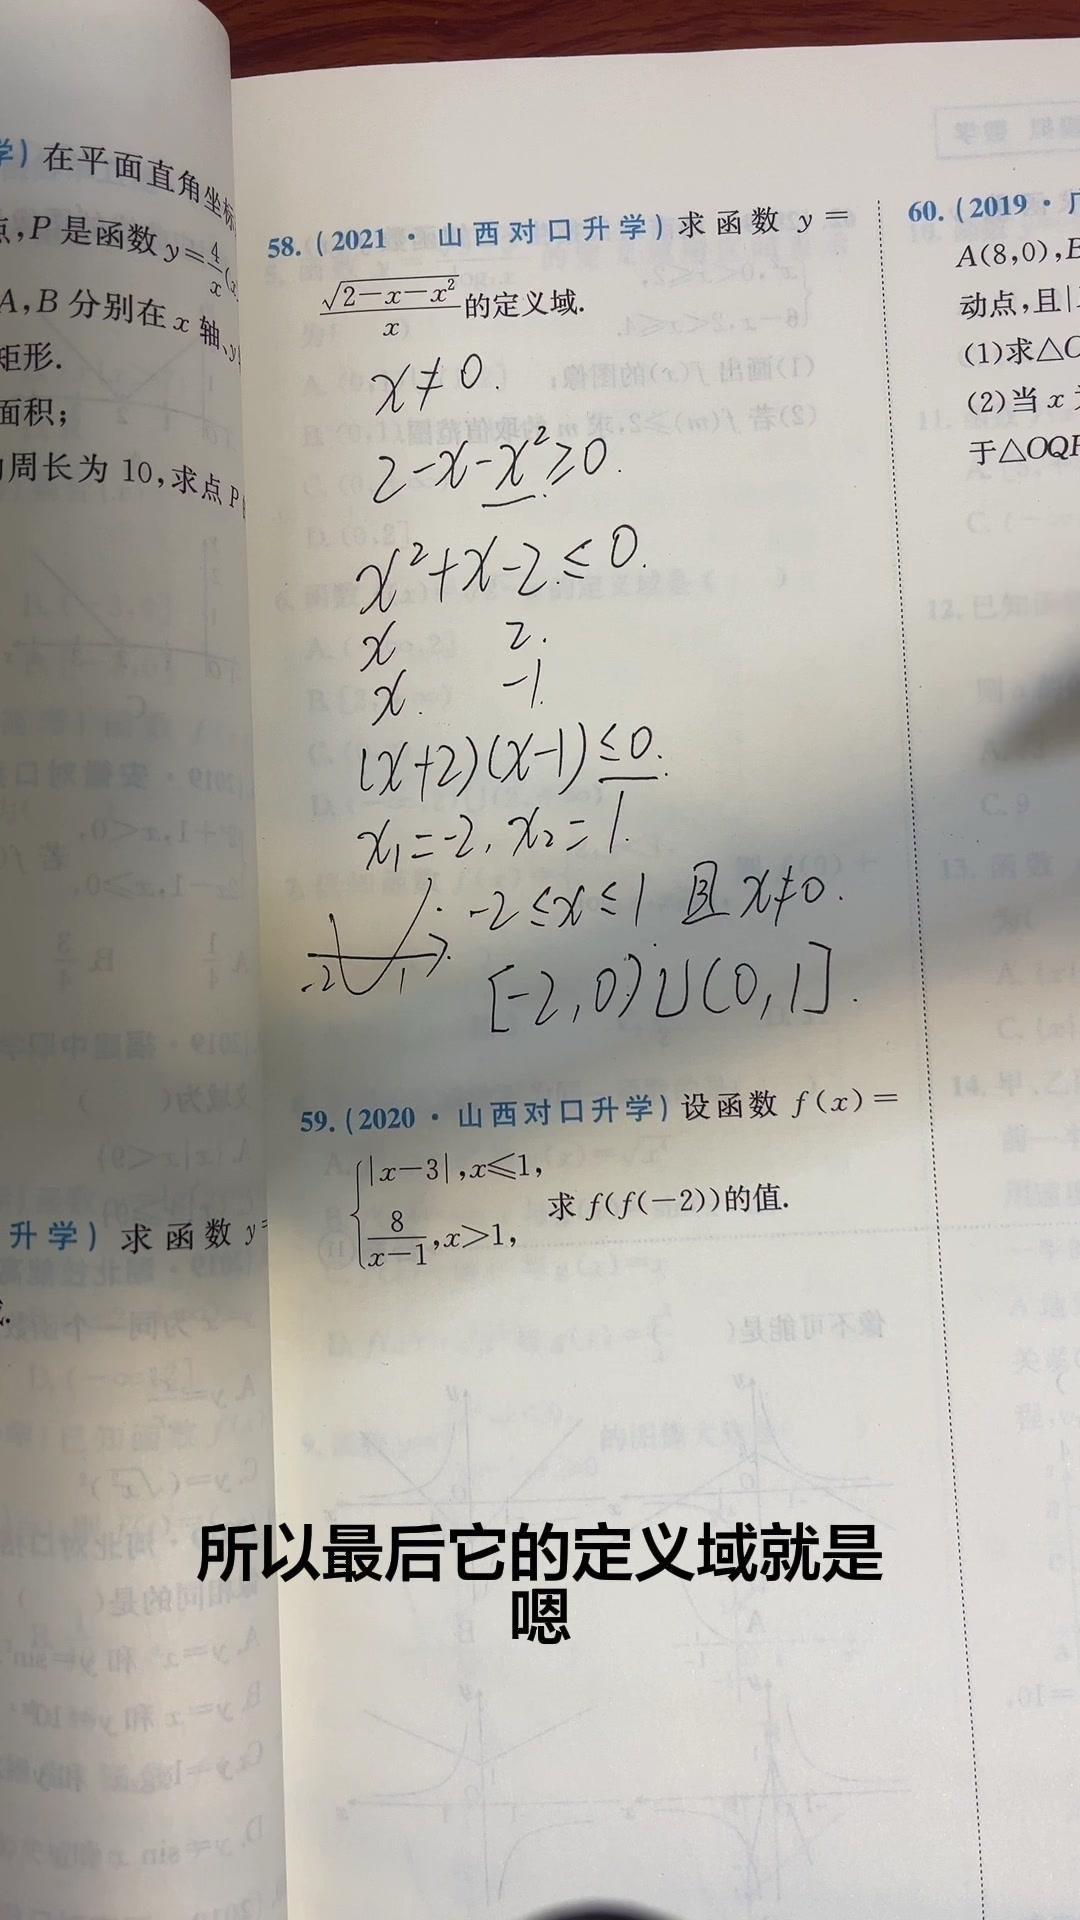 学) 在平面直角坐标
点,P 是函数 y=4/x(x
A,B 分别在 x 轴、y
矩形.
面积;
周长为 10,求点 P
升学) 求函数 y=
58. (2021·山西对口升学) 求函数 y=
√(2-x-x²)/x 的定义域.
x≠0.
2-x-x²≥0.
x²+x-2≤0.
x 2.
x. -1.
(x+2)(x-1)≤0.
x₁=-2, x₂=1.
-2≤x≤1 且 x≠0.
-2 1
[-2,0)∪(0,1].
59. (2020·山西对口升学) 设函数 f(x)=
{|x-3|,x≤1,
8/(x-1),x>1, 求 f(f(-2))的值.
60. (2019·广
A(8,0),B
动点,且|
(1)求△O
(2)当 x
于△OQP
所以最后它的定义域就是
嗯